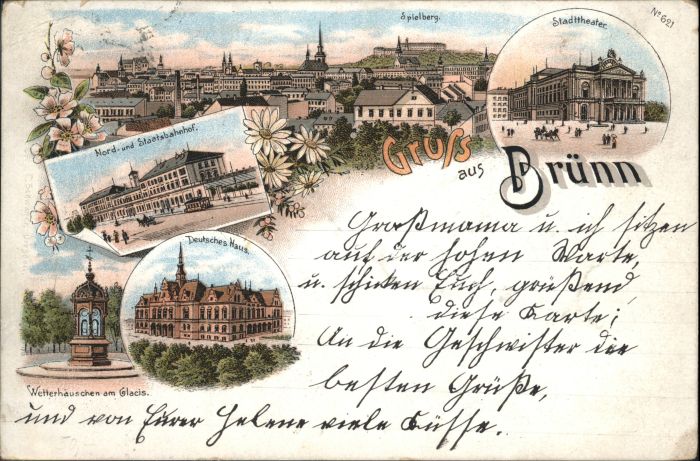 Spielberg.
Stadttheater.
No 621
Nord- und Staatsbahnhof.
Gruß aus Brünn
Deutsches Haus.
Wetterhäuschen am Glacis.
Großmama u. ich sitzen
auf der hohen Warte,
u. schicken Euch, grüßend
diese Karte;
An die Geschwister die
besten Grüße,
und von Eurer Helene viele Küsse.